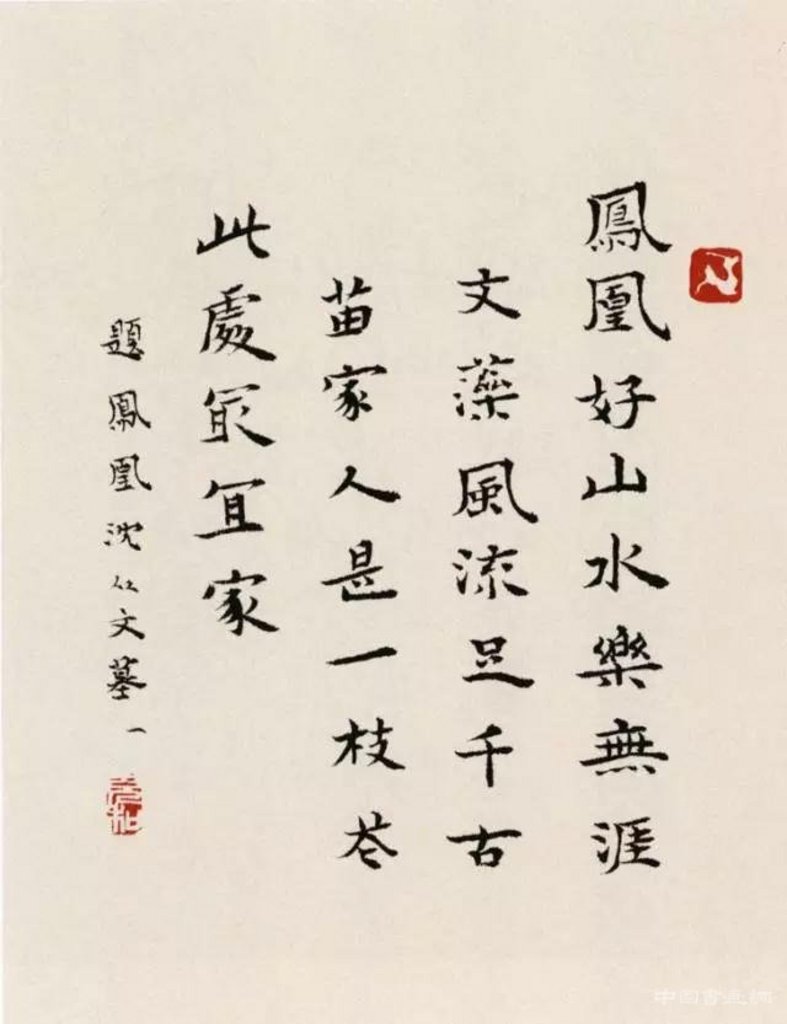 鳳凰好山水樂無涯
文藻風流足千古
苗家人是一枝花
此處宜家
題鳳凰沈從文墓一
中国書画網